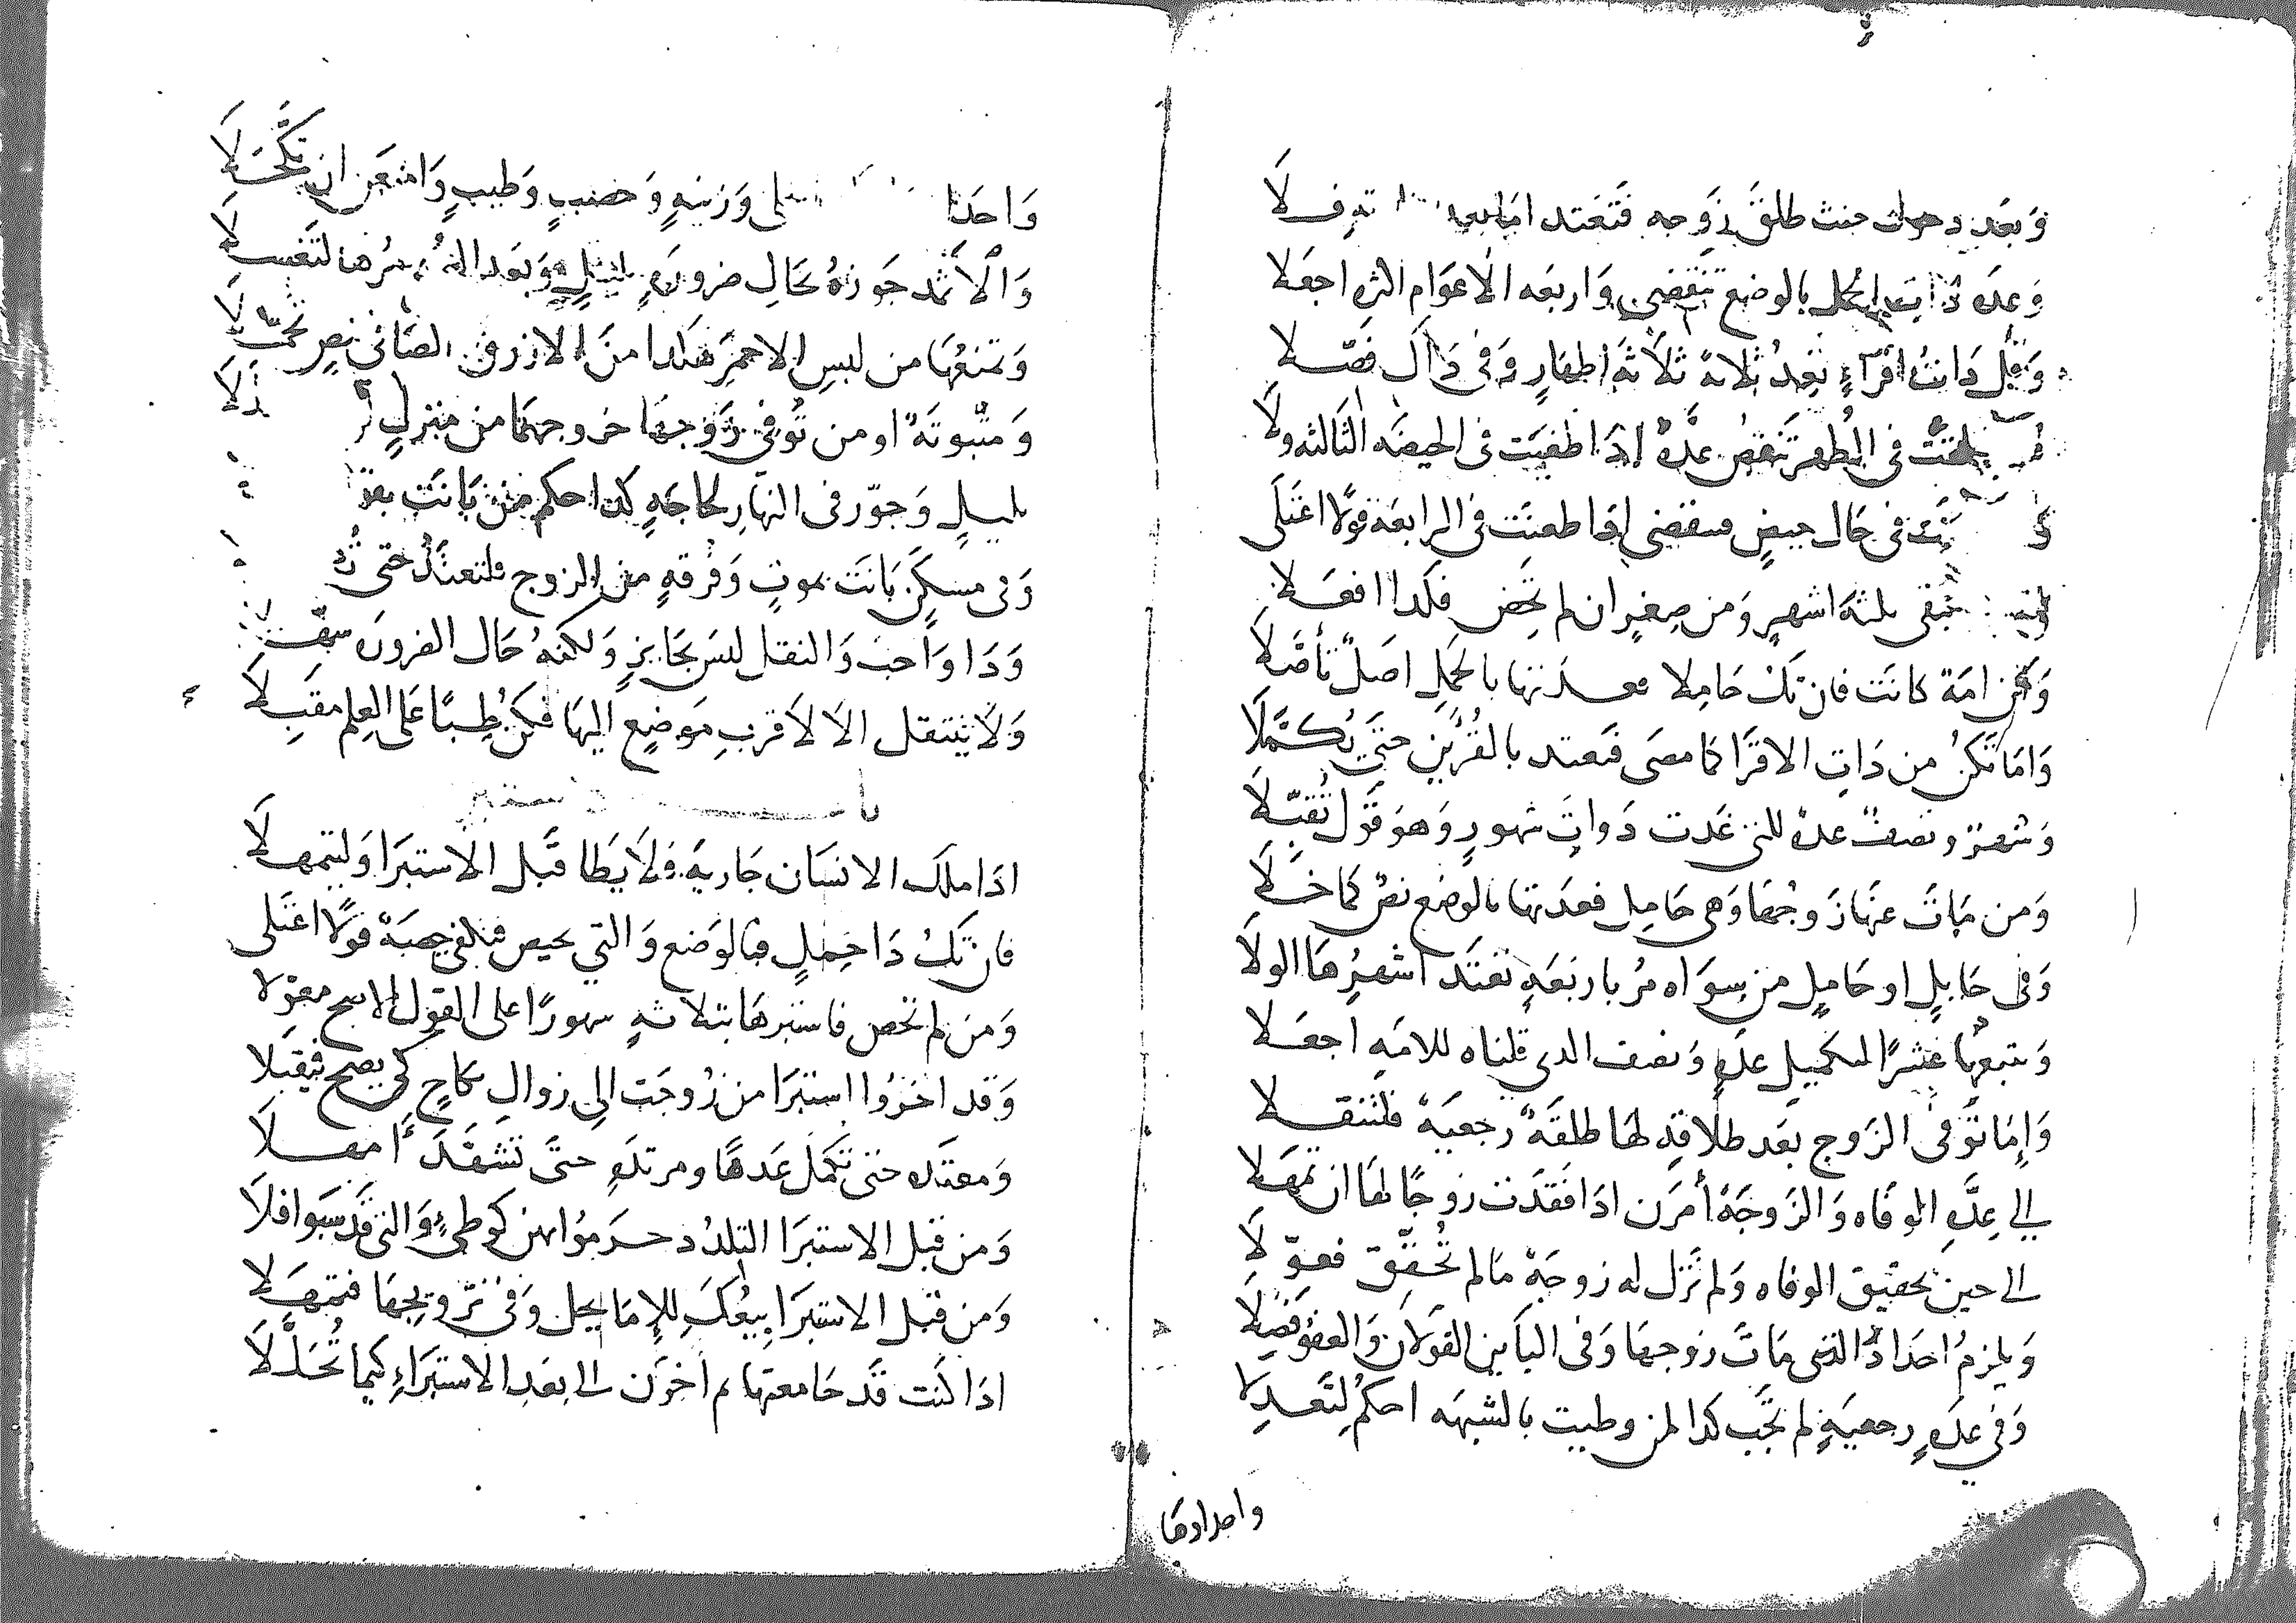 وَبعَد دخول حيث طلقَ زَوجه فتَعتد اما
وَعده ذات الحمل بالوضع تنقضى وَاربعه الاعوَام اكثره اجعَلا
وَقل ذاتُ اقرَاءٍ تعِدُ ثلاثة ثلَاثَة اطهَارٍ وَفى ذاكَ فصّلا
طلقت فى الطهر تنقض عدّةٌ اذا طعنَت فى الحيضَه الثالثه ولَا
فى حَال حيضٍ فينقضى اذا طعنَت فى الرابعَة قولًا اعتَلَى
تبقى ثلثة اشهرٍ وَمن صِغرٍ ان لم تحِض فكذا افعَلا
وَمَن امَة كانَت فان تك حَامِلا فعدتها بالحَملِ اصلٌ تأصَّلَا
وَامَا تكنُ من ذَاتِ الاقرَا كما مضى فتَعتد بالقُرْيَنِ حتَى تُكَمَّلَا
وَشهرٌ ونصفٌ عدة للتى غَدت ذوَاتَ شهورٍ وَهوَ قوَل تُقبّلَا
وَمن مَاتَ عنهَا زَوجُهَا وَهى حَامِل فعدَتها بالوَضع نصٌ كما خَلَا
وَفى حَايلٍ او حَامِلٍ من سِوَاه مُر باربَعَةٍ تعتَد اشهُرِهَا الولَا
وَيتبعهَا عَشرًا لتكميلِ عدةٍ وَنصف الذى قلناه للامَةِ اجعَلا
وَإمَا تَوفى الزَوج بعَد طلَاقهِ لهَا طلقَةً رجعيَة فلتَنقلا
الى عِدَّة الوفَاه وَالزَوجَة أمرَن اذَا فقدَت زوجًا لهَا ان تمهَلا
الى حين تحقيق الوفاه وَلم تزل له زوجَة مَا لم تُحقّق فعوّلَا
وَيلزمُ احدَادٌ التى مَاتَ زوجهَا وَفى البَاين القوَلان وَالعفوَ فضِلَا
وَفي عدَةٍ رجعيَةٍ لم تجَب كذا لمن وطيت بالشبهَه احكُم لتَعدِلا
واحدادها
وَاحدا وَزينهٍ وَخضبٍ وَطيبٍ وَامنعَن ان تكَّحَلَا
وَالاثمد جوزهُ بحَالِ ضرورَةٍ بليَلٍ وَبعَد لتغسلَا
وَتمنعُهَا من لبسِ الاحمرِ هكذا منَ الازرقِ الصَافى
وَمبتُوتَةً او من تُوفى زوجهَا خروجهَا من منزلٍ
بليلٍ وَجوّز فى النهارِ لحَاجَةٍ كذا حكم من بَانَت بفر
وَفى مسكِنٍ بَانَت بموتٍ وَفُرقهٍ من الزوج فلتعتدَّ حتى
وَذا وَاجب وَالنقل ليسَ بجَايزٍ وَلكنهُ حَال الضرورَه
وَلَا ينتقل الا لاقربِ مَوضعٍ اليهَا فكن طِبًا عَلى العِلم مقبِلَا
باب
اذَا ملكَ الانسَان جَارية فلَا يَطا قبَل الاستبرَا وَليتمهلَا
فان تكُ ذا حَملٍ فبالوَضع وَالتي تحيض فبلغ حيضَة قولًا اعتَلى
وَمَن لم تحض فاستبرهَا بثلاثهٍ شهورًا على القوَل الاصح معوّلا
وَقد اخرُوا استبرَا من زُوجَت الى زوالِ نكاحٍ كى يصح فيُقبَلا
وَمعتده حتى تكمّل عَدهَا ومرتدةٍ حتَى تشهَّدَ امهلَا
وَمن قبل الاستبرَا التلذذ حرمُوا بهن كوطىءٍ وَالتى قد سبَوا فلَا
وَمن قبل الاستبرَا بيعُكَ للامَا يحل وَفى تزويجهَا فتمهلَا
اذَا كنت قد جَامعتها ثم اخرَن الى بعَد الاستبرَاءِ كيما تُحَلَّلَا